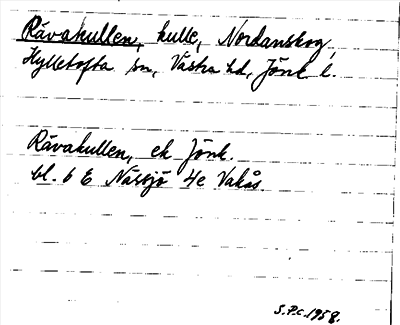 Rävakullen, kulle, Nordanskog,
Hylletofta sn, Västra hd, Jönk. l.
Rävakullen, ek Jönk.
bl. 6 E Nässjö 4e Vakås
S.P.C. 1958.